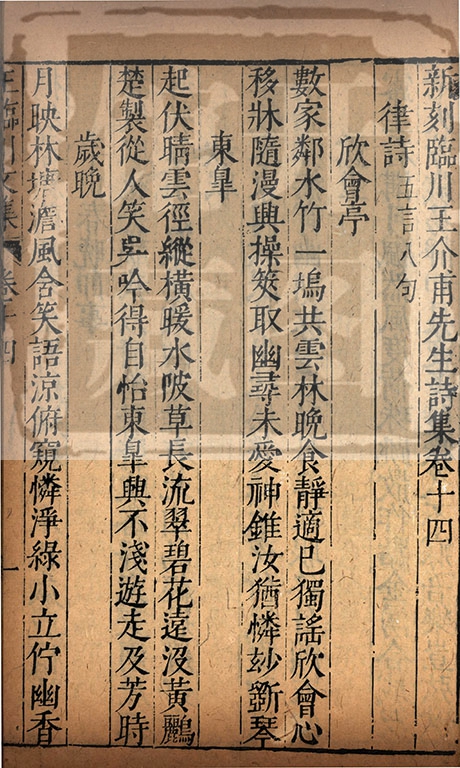 新刻臨川王介甫先生詩集卷十四
律詩五言八句
欣會亭
數家鄰水竹一塢共雲林晚食靜適已獨謠欣會心
移牀隨漫興操筴取幽尋未愛神錐汝猶憐玅斵琴
東皐
起伏晴雲徑縱橫暖水陂草長流翠碧花遠沒黃鸝
楚製從人笑吳吟得自怡東皐興不淺遊走及芳時
歲晚
月映林塘澹風含笑語涼俯窺憐淨綠小立佇幽香
王臨川文集 卷十四 一